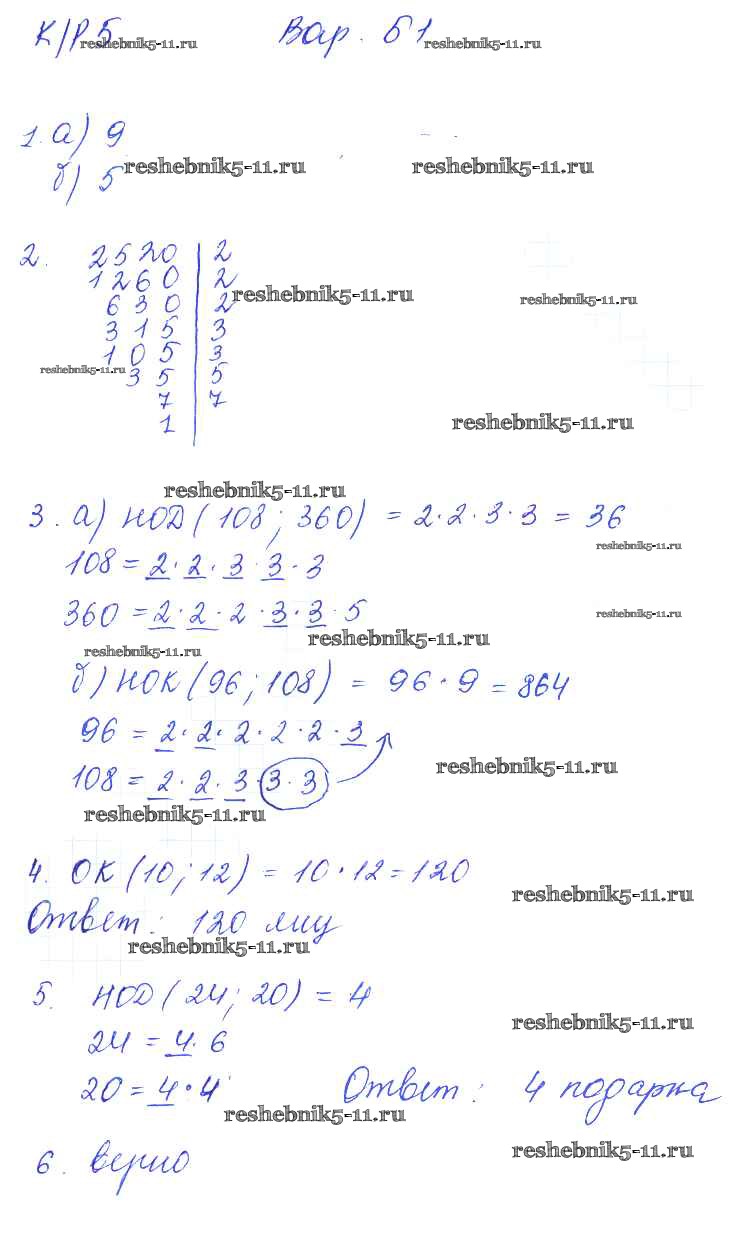 К/Р 5 Вар. Б1
reshebnik5-11.ru reshebnik5-11.ru
1. а) 9
reshebnik5-11.ru reshebnik5-11.ru
б) 5
2. 2520 | 2
1260 | 2
reshebnik5-11.ru reshebnik5-11.ru
630 | 2
315 | 3
105 | 3
reshebnik5-11.ru
35 | 5
7 | 7
1
reshebnik5-11.ru
reshebnik5-11.ru
3. а) НОД (108; 360) = 2·2·3·3 = 36
reshebnik5-11.ru
108 = 2·2·3·3·3
360 = 2·2·2·3·3·5
reshebnik5-11.ru
reshebnik5-11.ru
reshebnik5-11.ru
б) НОК (96; 108) = 96·9 = 864
96 = 2·2·2·2·2·3
108 = 2·2·3·3·3
reshebnik5-11.ru
reshebnik5-11.ru
4. ОК (10; 12) = 10·12 = 120
reshebnik5-11.ru
Ответ: 120 лиц
reshebnik5-11.ru
5. НОД (24; 20) = 4
reshebnik5-11.ru
24 = 4·6
20 = 4·4 Ответ: 4 подарка
reshebnik5-11.ru
reshebnik5-11.ru
6. верно